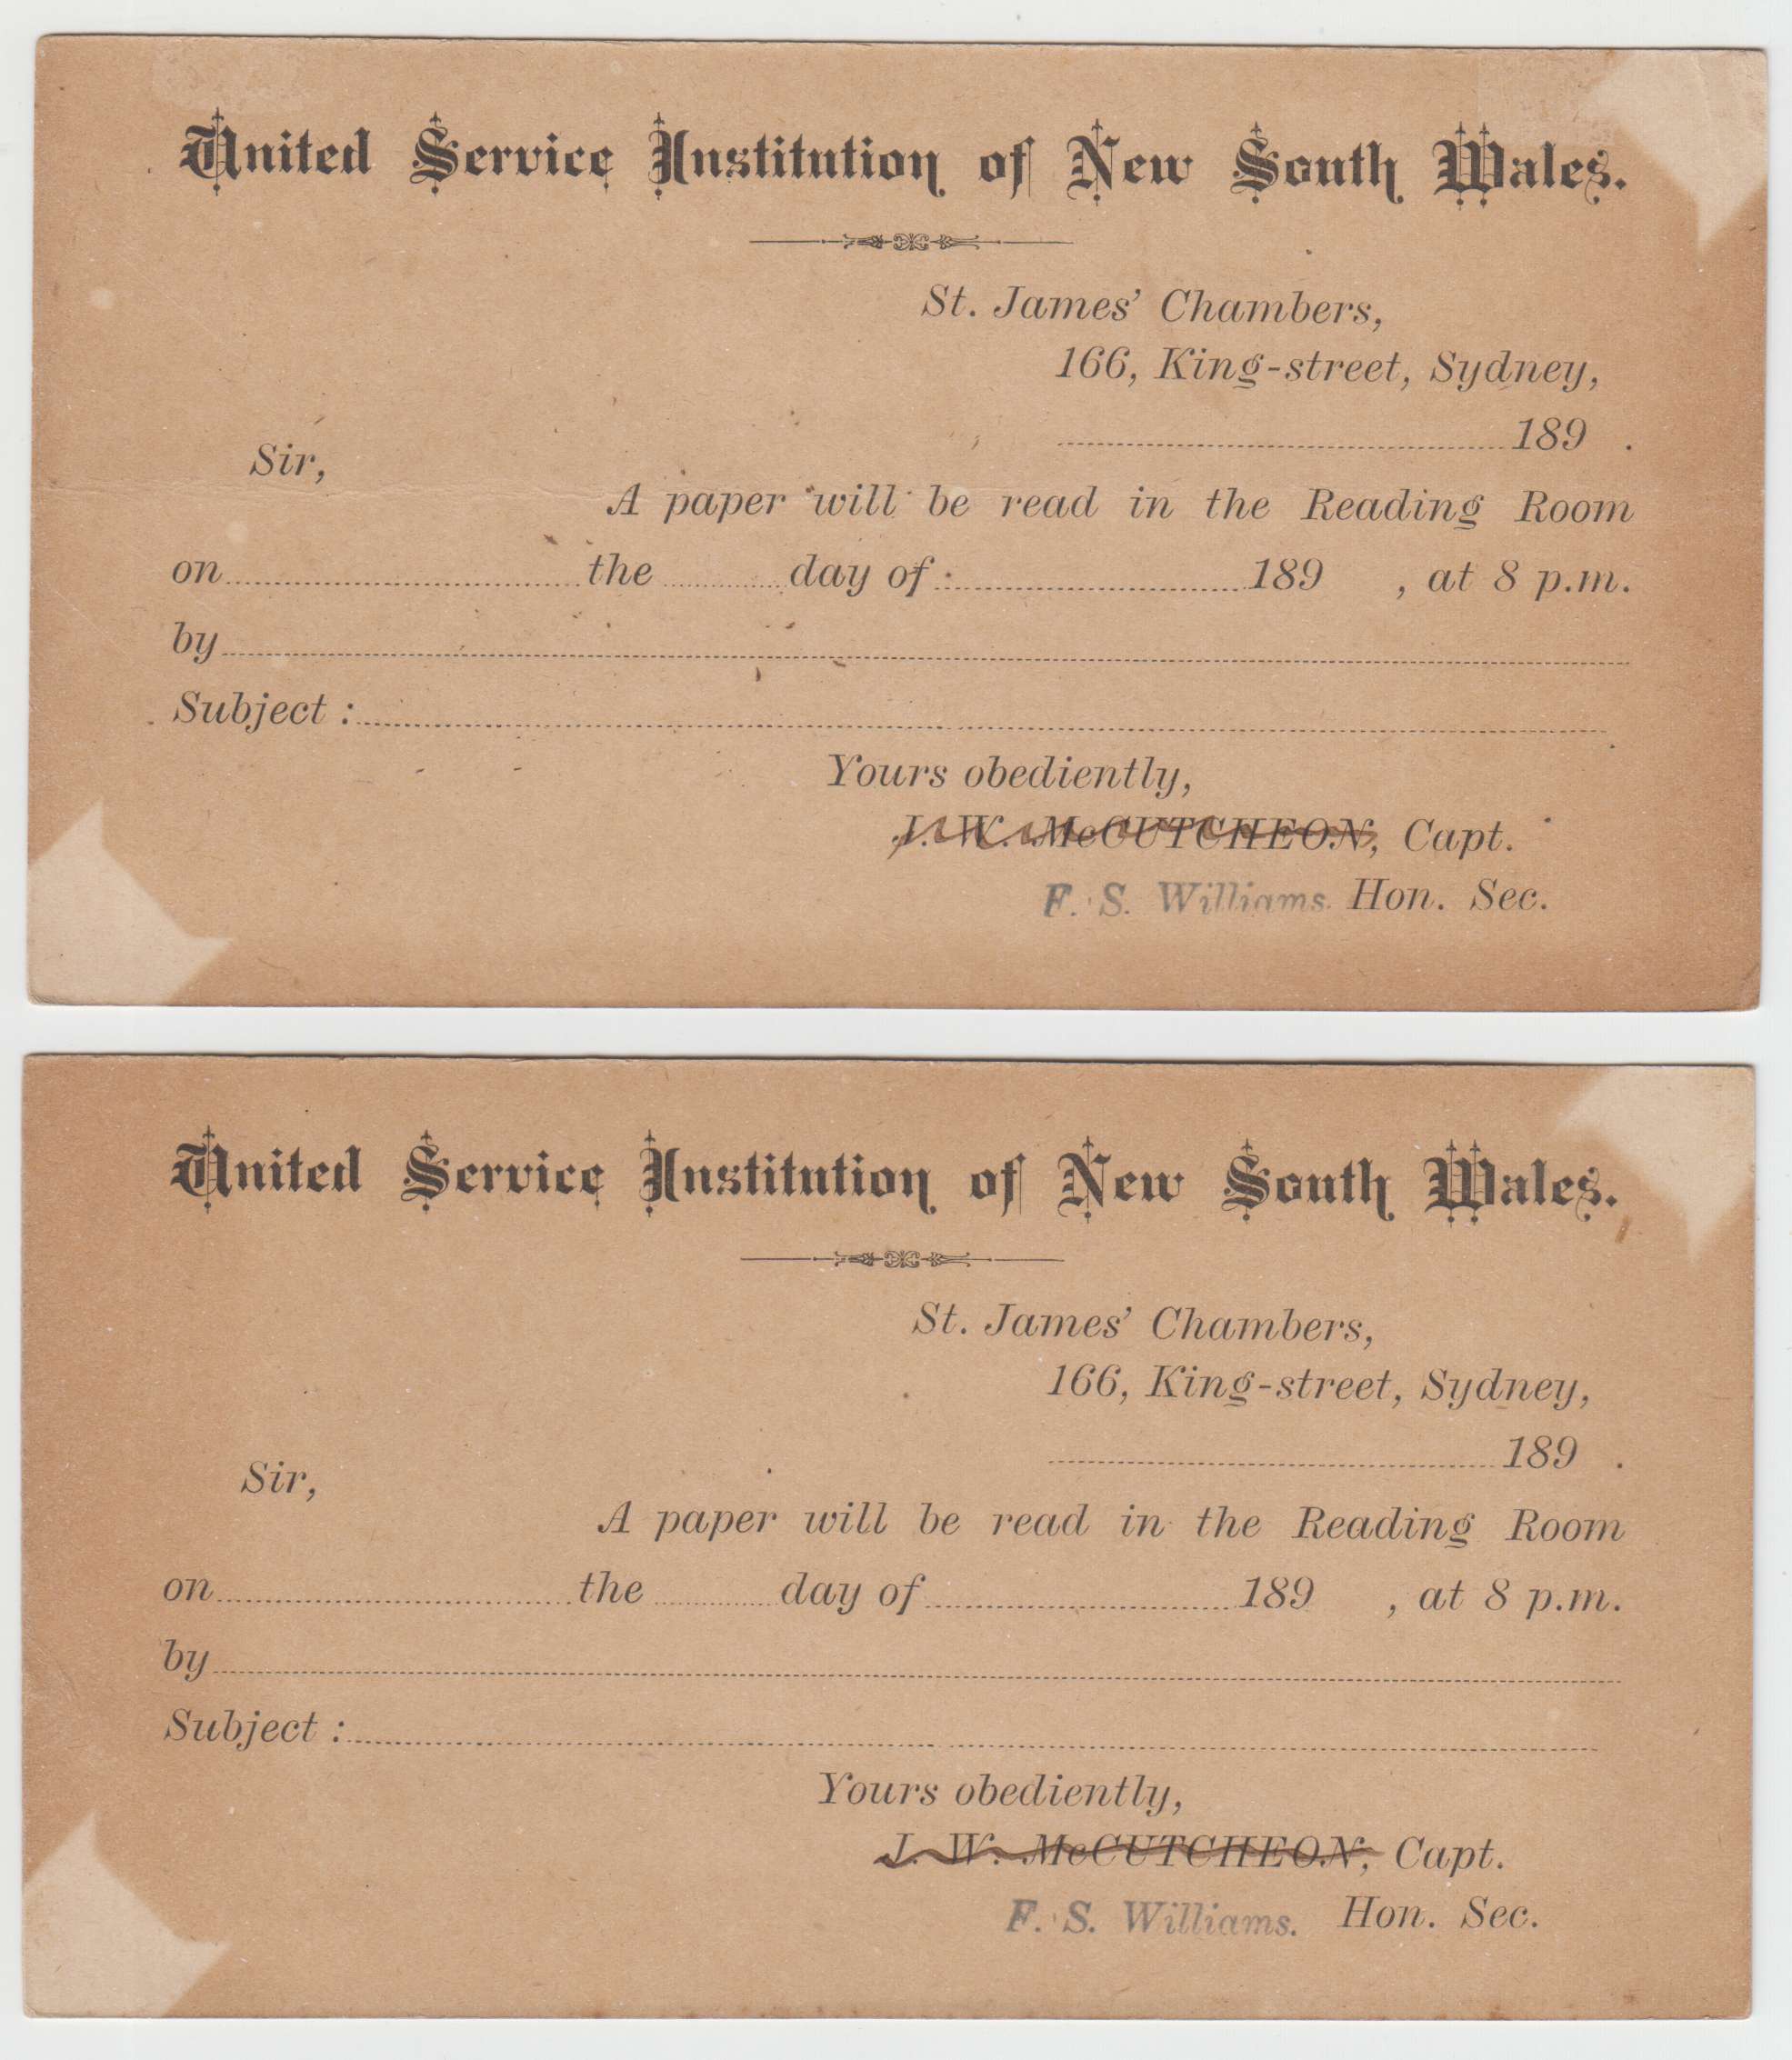 United Service Institution of New South Wales.
St. James' Chambers,
166, King-street, Sydney,
189 .
Sir,
A paper will be read in the Reading Room
on the day of 189 , at 8 p.m.
by
Subject :
Yours obediently,
J. W. McCUTCHEON, Capt.
F. S. Williams. Hon. Sec.
United Service Institution of New South Wales.
St. James' Chambers,
166, King-street, Sydney,
189 .
Sir,
A paper will be read in the Reading Room
on the day of 189 , at 8 p.m.
by
Subject :
Yours obediently,
J. W. McCUTCHEON, Capt.
F. S. Williams. Hon. Sec.